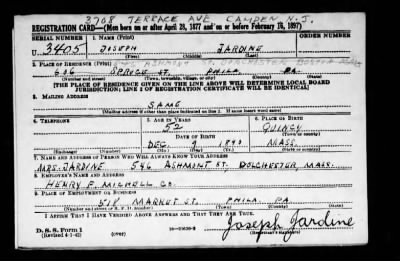 3708 TERRACE AVE CAMDEN N.J.
REGISTRATION CARD—(Men born on or after April 28, 1877 and on or before February 16, 1897)
SERIAL NUMBER 1. NAME (Print) ORDER NUMBER
U 3405 JOSEPH JARDINE
(First) (Middle) (Last)
546 ASHMONT ST. DORCHESTER
2. PLACE OF RESIDENCE (Print)
606 SPRUCE ST. PHILA. PA
(Number and street) (Town, township, village, or city) (County) (State)
[THE PLACE OF RESIDENCE GIVEN ON THE LINE ABOVE WILL DETERMINE LOCAL BOARD
JURISDICTION; LINE 2 OF REGISTRATION CERTIFICATE WILL BE IDENTICAL]
3. MAILING ADDRESS
SAME
[Mailing address if other than place indicated on line 2. If same insert word same]
4. TELEPHONE 5. AGE IN YEARS 6. PLACE OF BIRTH
52 QUINCY
DATE OF BIRTH (Town or county)
DEC. 9 1890 MASS.
(Exchange) (Number) (Mo.) (Day) (Yr.) (State or country)
7. NAME AND ADDRESS OF PERSON WHO WILL ALWAYS KNOW YOUR ADDRESS
MRS. JARDINE 546 ASHMONT ST, DOLCHESTER, MASS.
8. EMPLOYER'S NAME AND ADDRESS
HENRY F. MICHELL CO.
9. PLACE OF EMPLOYMENT OR BUSINESS
518 MARKET ST. PHILA. PA
(Number and street or R. F. D. number) (Town) (County) (State)
I AFFIRM THAT I HAVE VERIFIED ABOVE ANSWERS AND THAT THEY ARE TRUE.
D. S. S. Form 1
(Revised 4-1-42) (over) Joseph Jardine